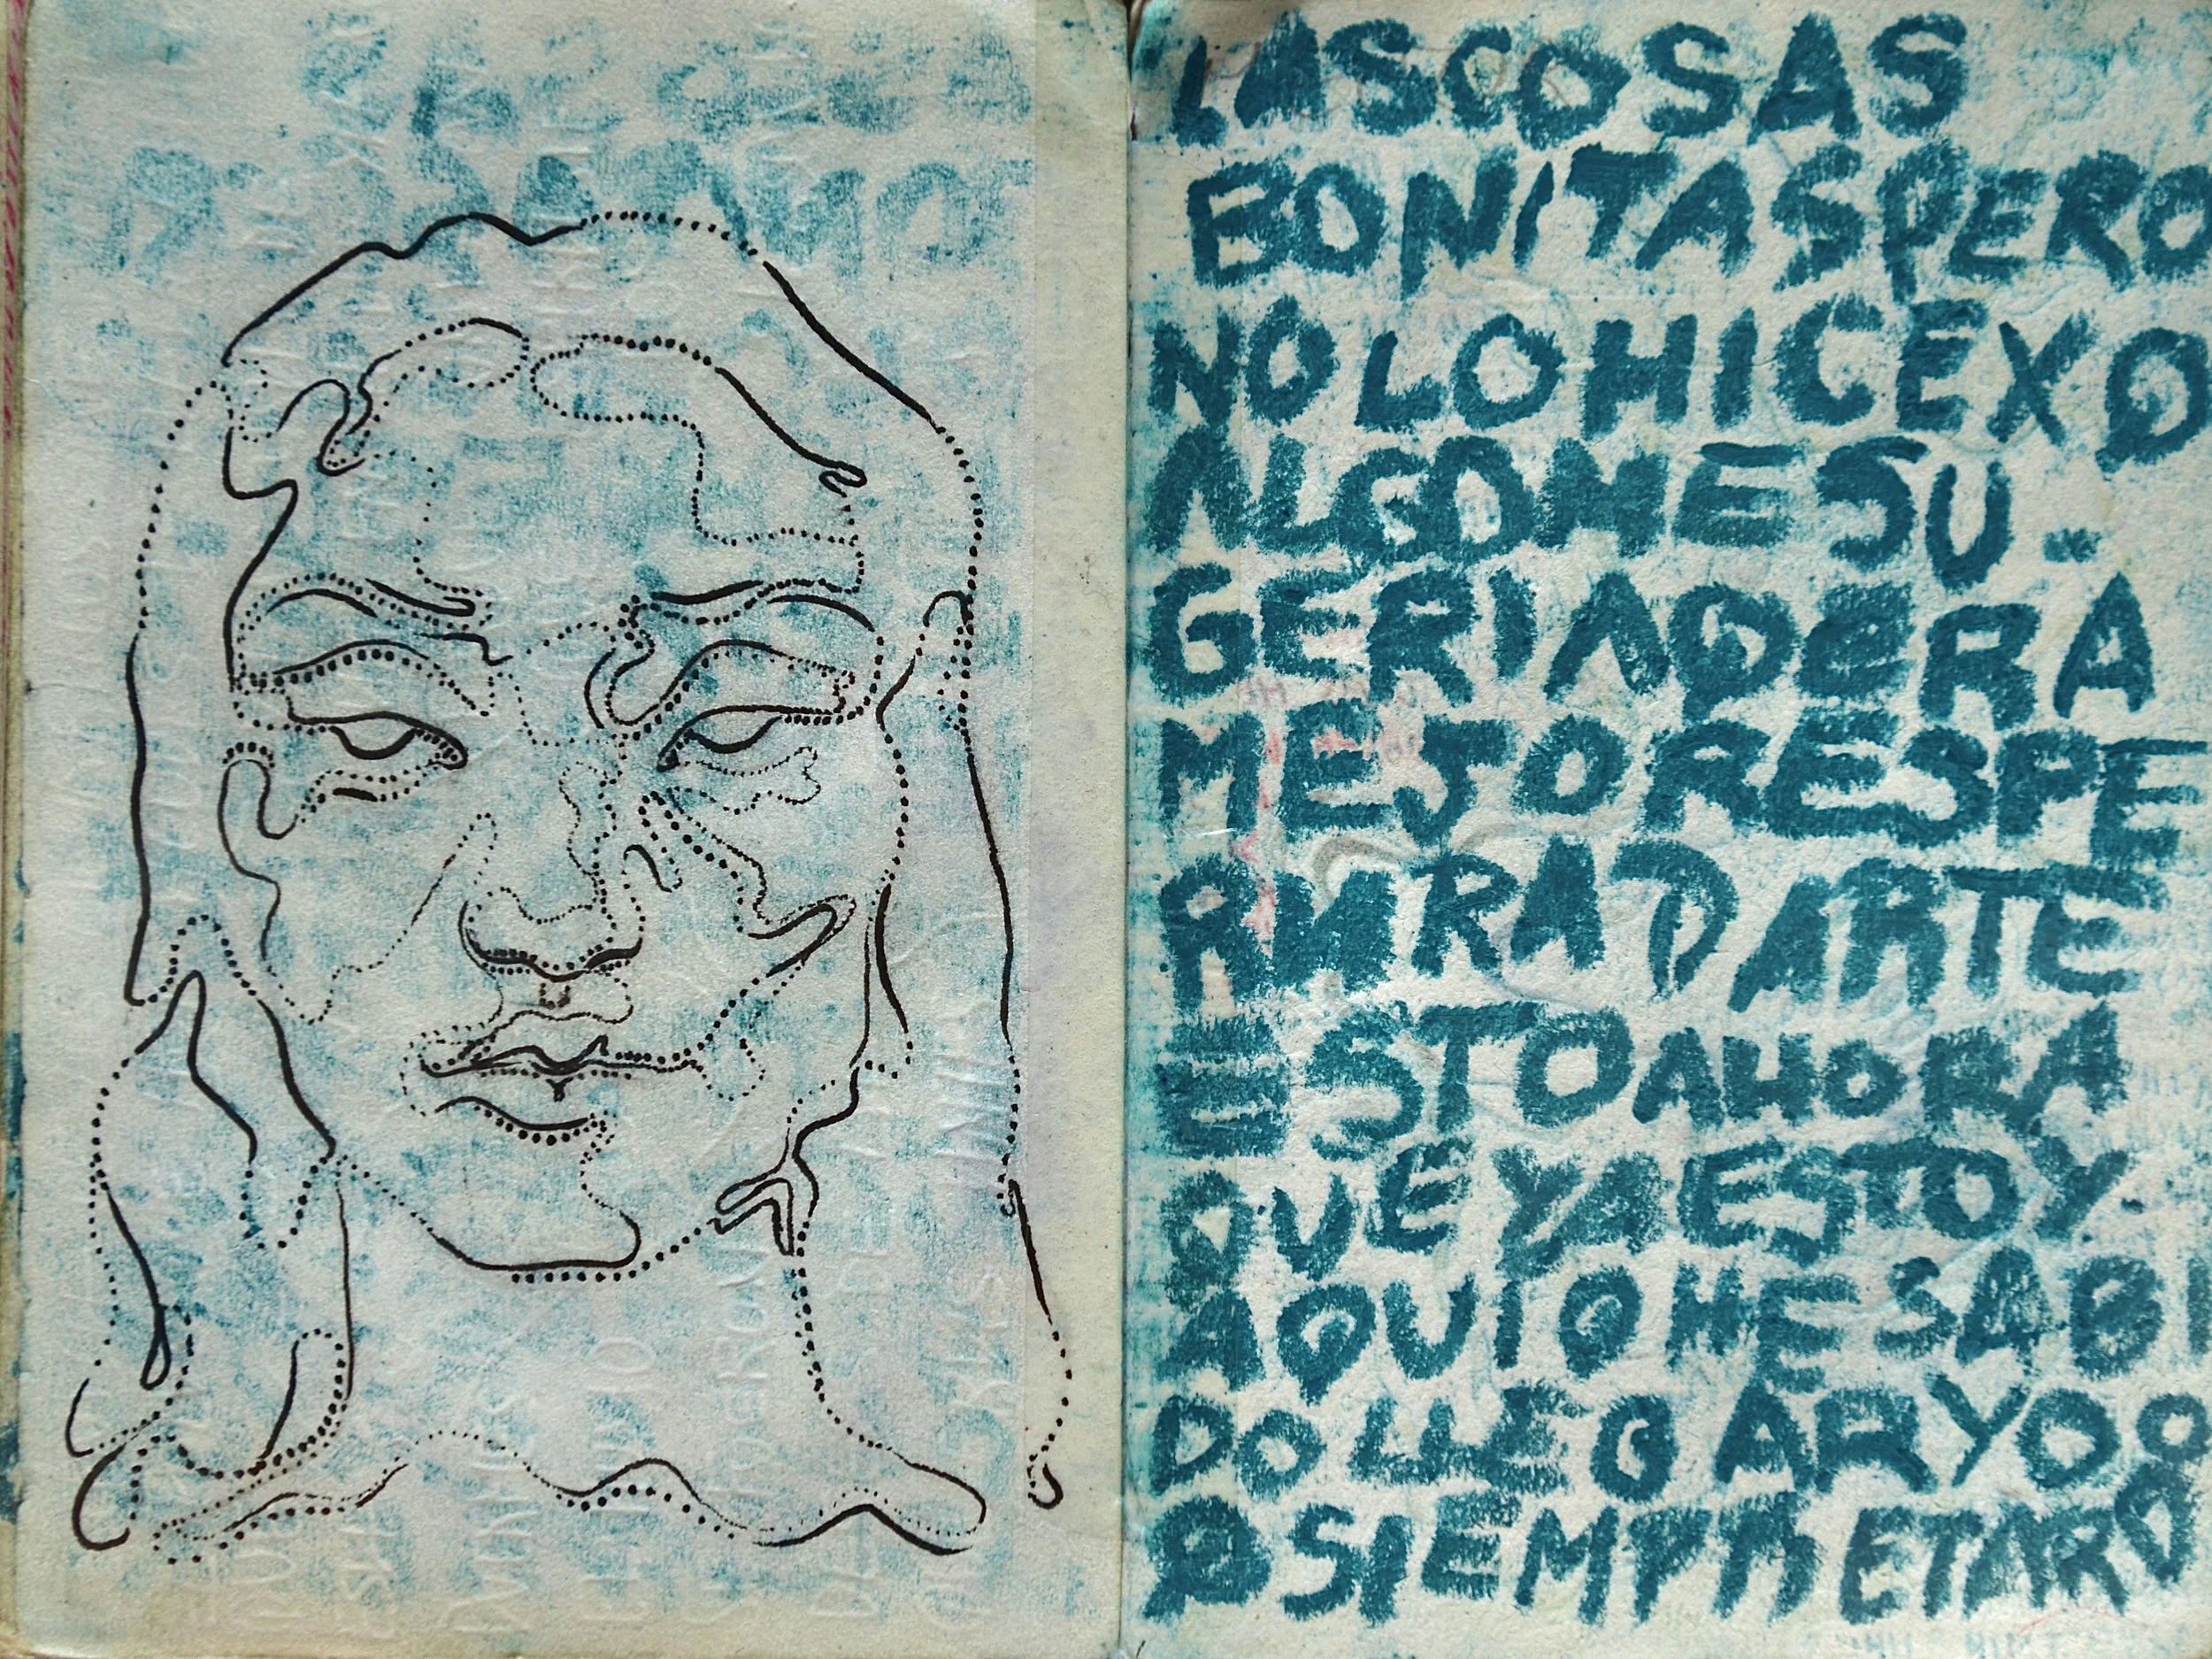 LAS COSAS
BONITAS PERO
NO LO HICE X Q
ALGO ME SU-
GERIA Q ERA
MEJOR ESPE
DARTE
ESTO AHORA
QUE YA ESTOY
AQUI Q HE SABI
DO LLEGAR YO
SIEMPRE TARD